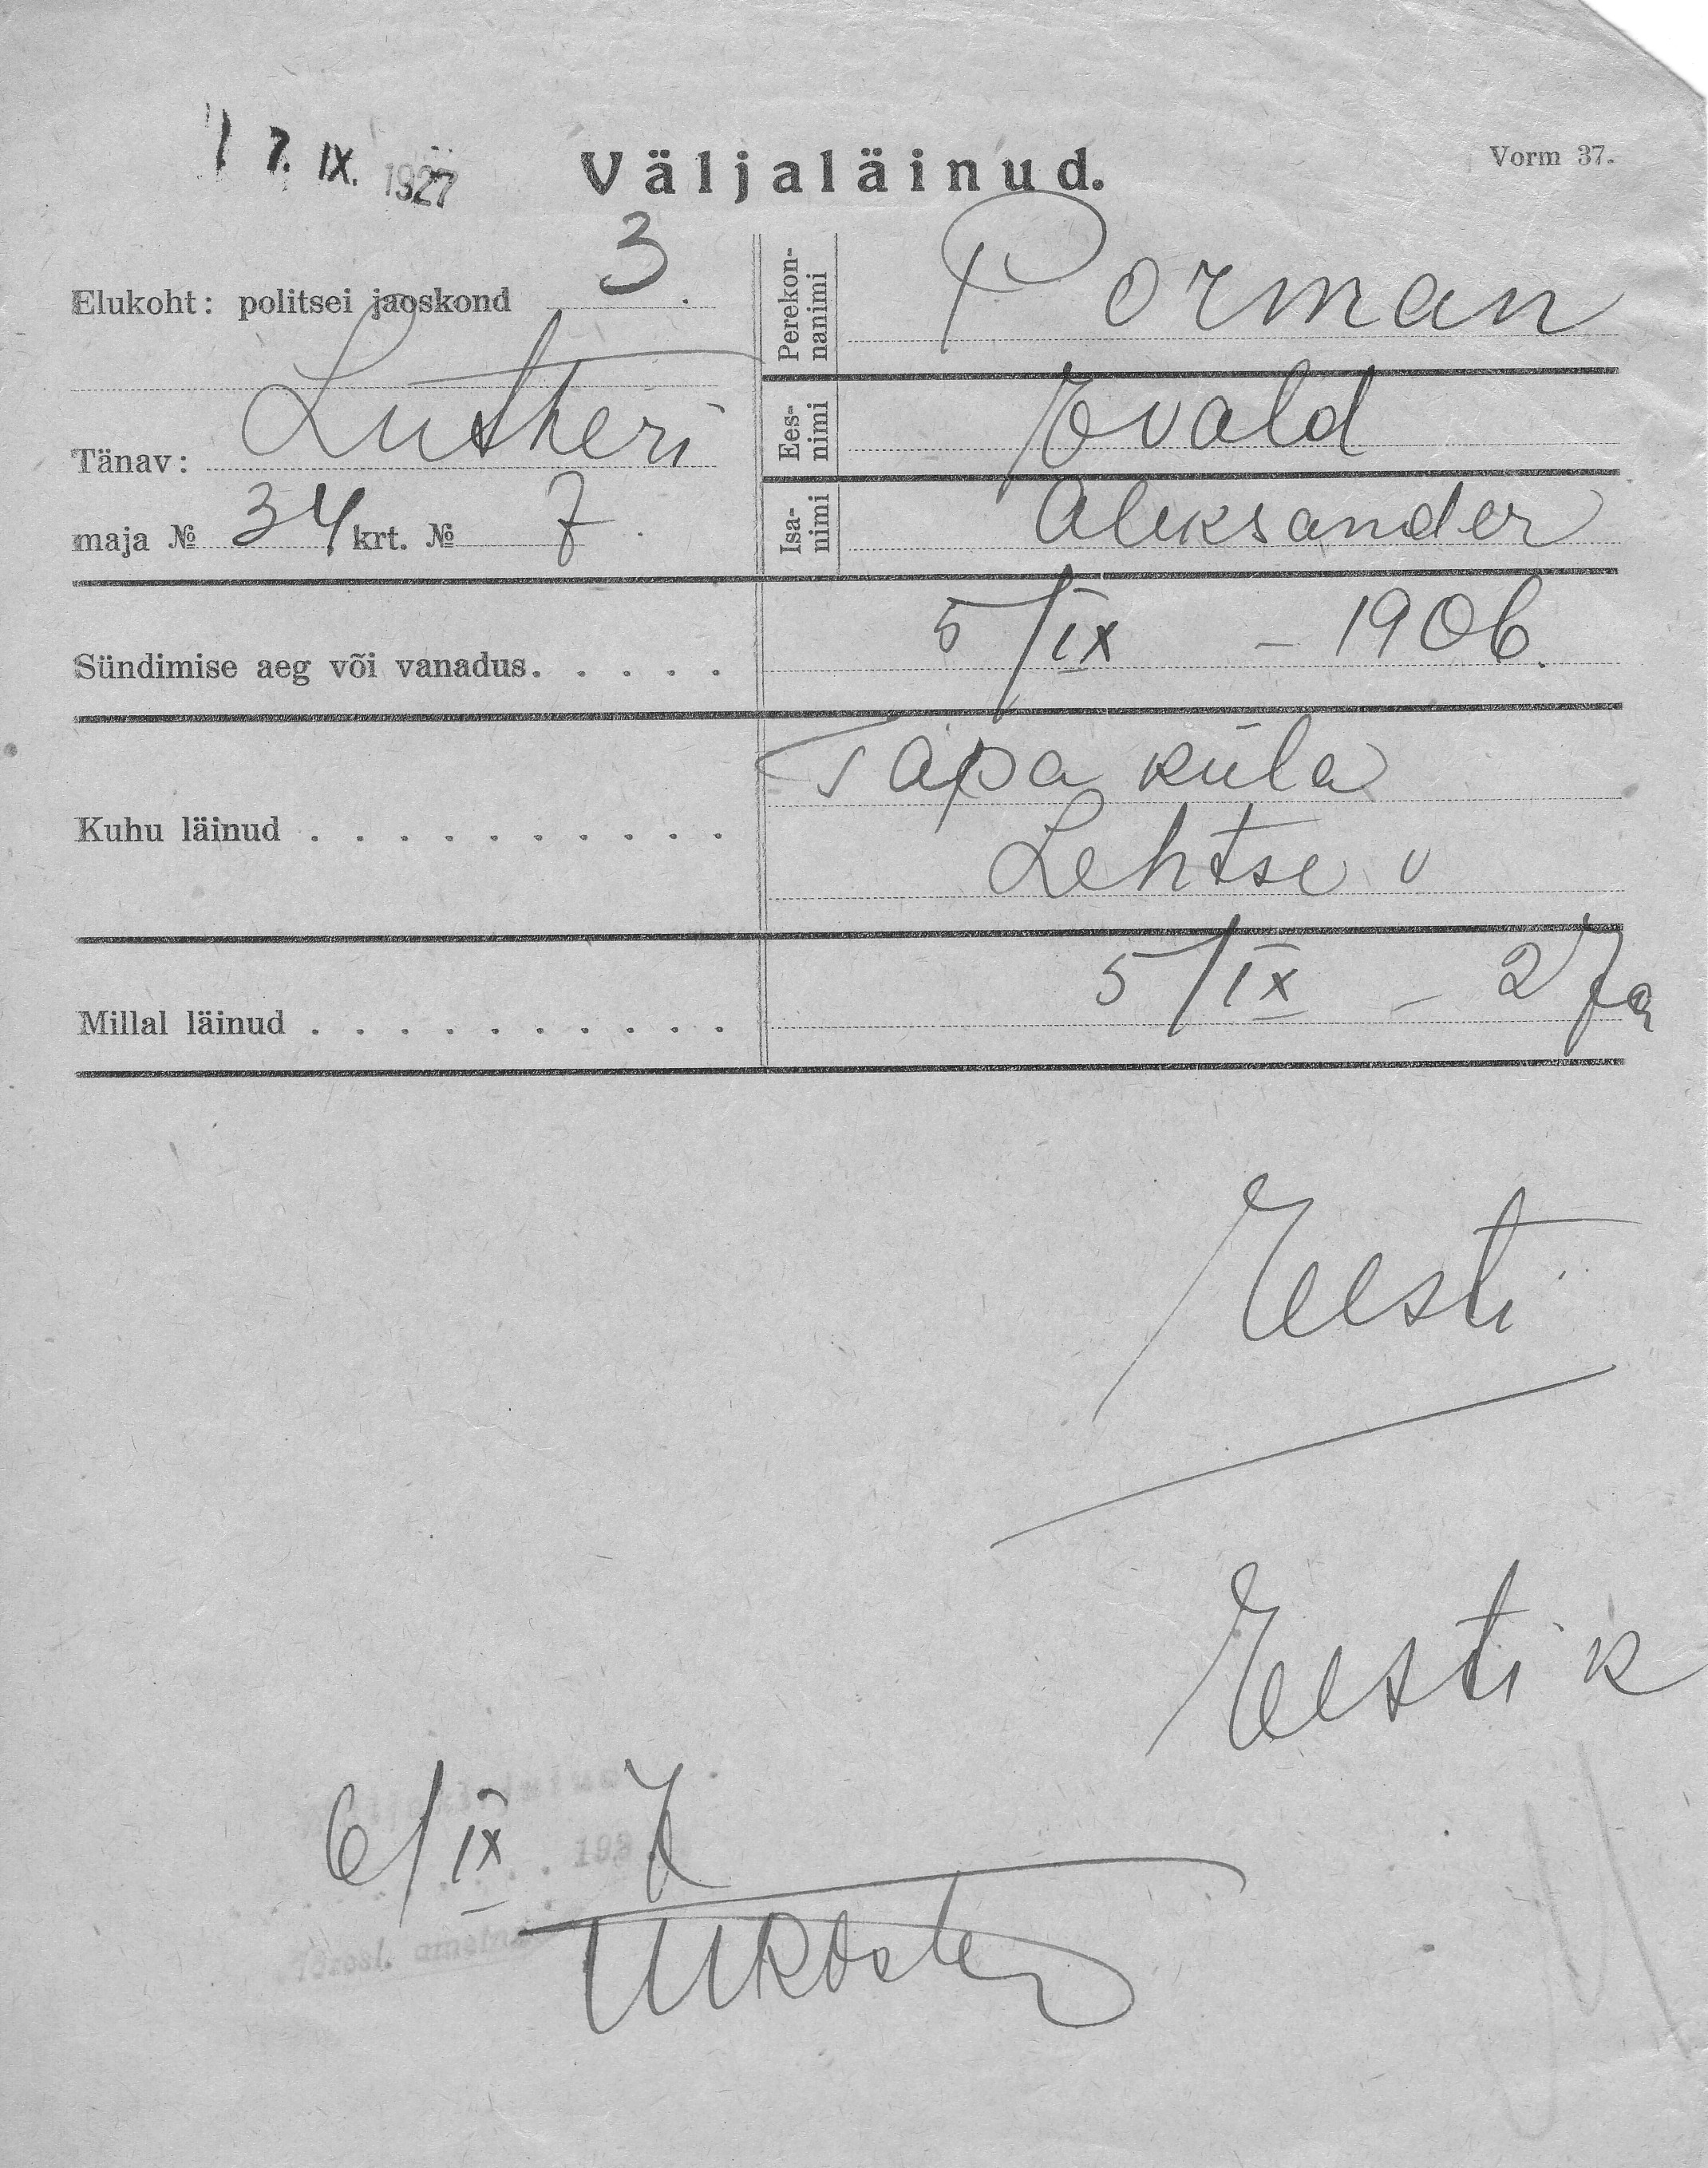 17. IX. 1927
Väljaläinud.
Vorm 37.
Elukoht: politsei jaoskond 3.
Tänav: Lutheri
maja № 34 krt. № 7.
Perekon-
nanimi
Porman
Ees-
nimi
Evald
Isa-
nimi
Aleksander
Sündimise aeg või vanadus. . . . . 5/IX – 1906.
Kuhu läinud . . . . . . . . . . Tapa küla
Lehtse v
Millal läinud . . . . . . . . . . 5/IX – 27 a
Eesti
Eesti k
6/IX 7
192